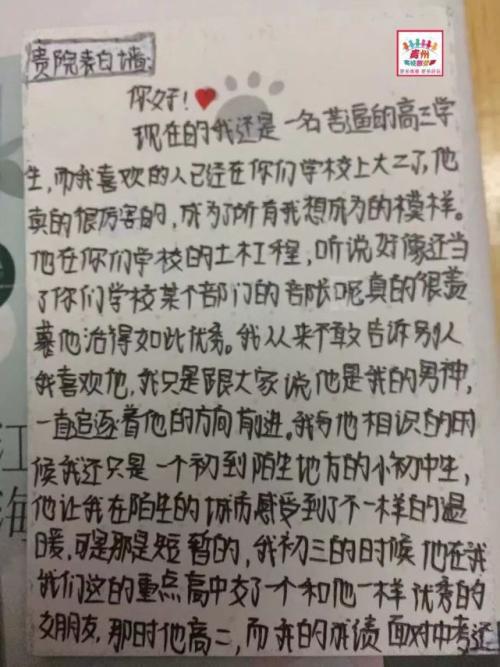 贵州
高校联盟
贵院表白墙:
你好!
现在的我还是一名苦逼的高三学
生,而我喜欢的人已经在你们学校上大二了,他
真的很厉害的,成为了所有我想成为的模样。
他在你们学校的土木工程,听说好像还当
了你们学校某个部门的部长呢真的很羡
慕他活得如此优秀。我从来不敢告诉别人
我喜欢他,我只是跟大家说他是我的男神,
一直追逐着他的方向前进。我与他相识的时
候我还只是一个初到陌生地方的小初中生,
他让我在陌生的城市感受到了不一样的温
暖,可是那是短暂的,我初三的时候他在我
我们这的重点高中交了一个和他一样优秀的
女朋友,那时他高二,而我的成绩面对中考还
江
海